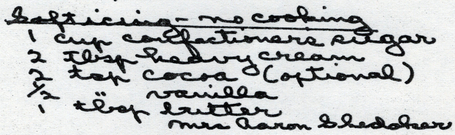 Soft icing - no cooking
1 cup confectioners sugar
2 tbsp heavy cream
2 tsp cocoa (optional)
1/2 " vanilla
1 tbsp butter
Mrs Aaron Shedaker